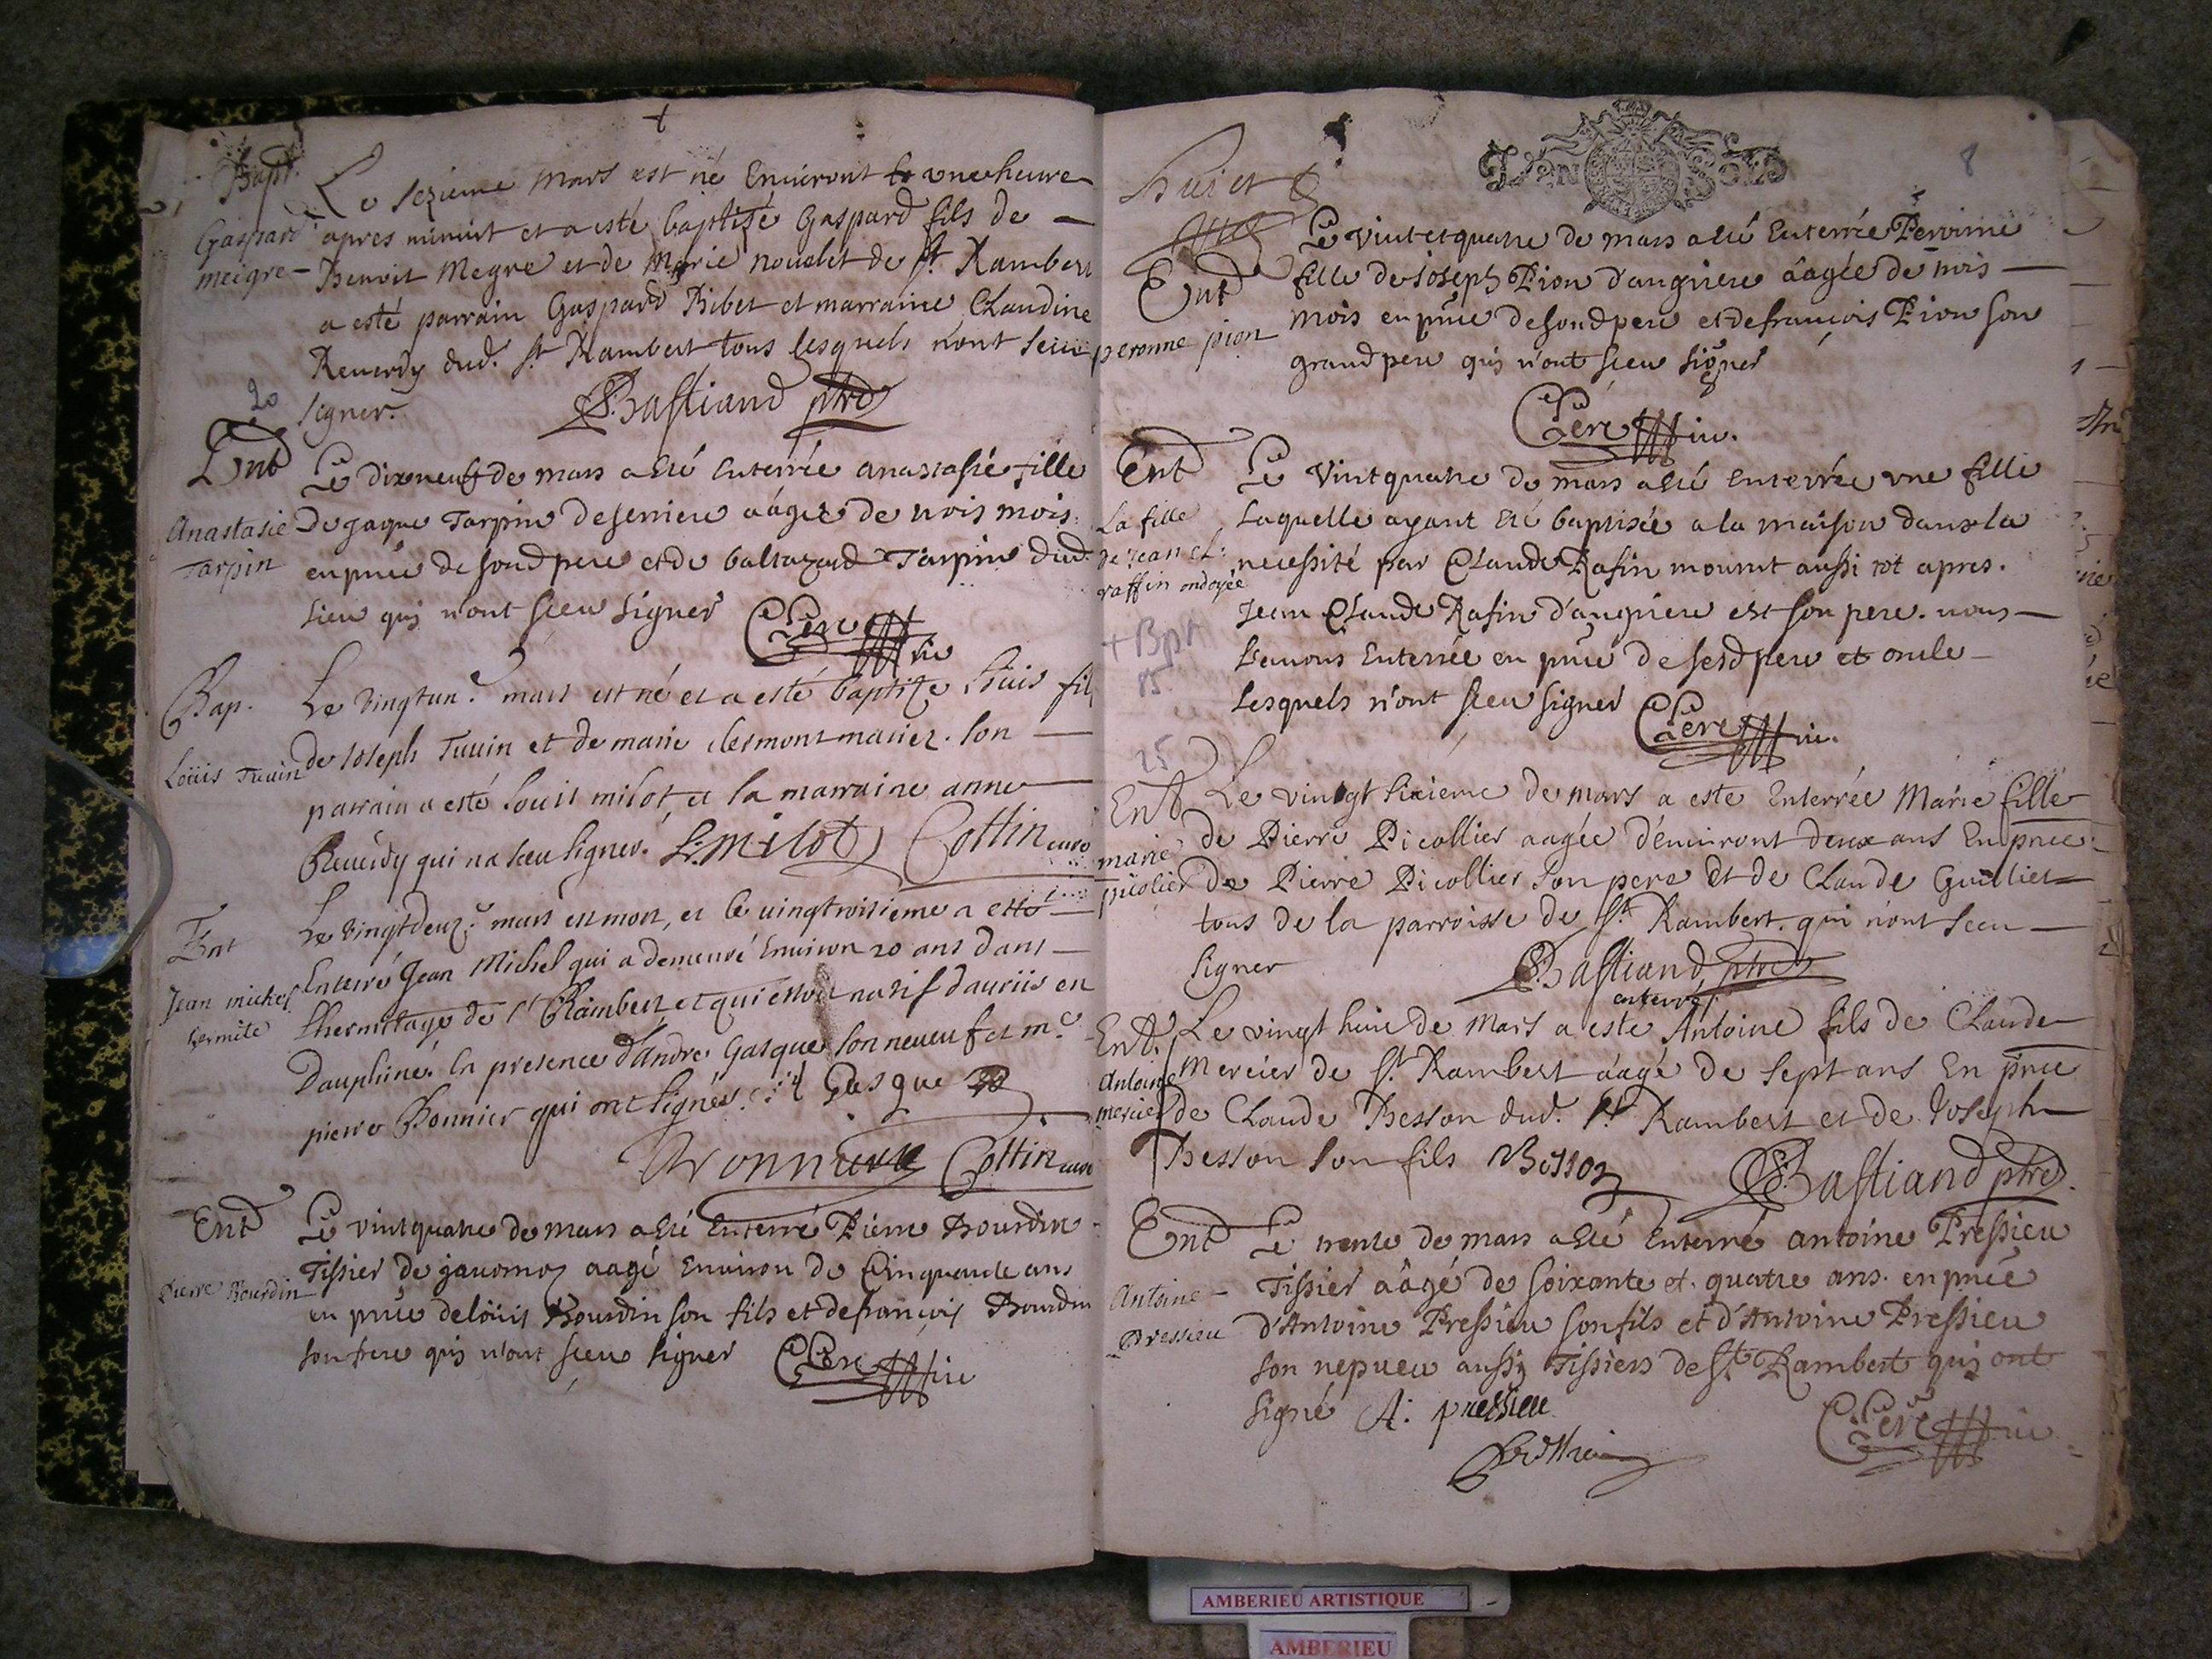 Bapt.
Gaspard
meigre
Le sezieme Mars est né Enuiront vne heure
apres minuit et a esté baptisé Gaspard fils de
Benoit Megre et de Marie nouelet de st Rambert
a esté parrain Gaspard Bibet et marraine Claudine
Reuerdy dud. st Rambert tous lesquels n'ont sceu
signer. Bastiand ptre
20
Ent
Anastasie
Tarpin
Le dixneuf de mars a été enterrée anastasie fille
de jaque Tarpin de serriere aâgée de trois mois
en pnce de sond pere et de baltazard Tarpin dud.
lieu quj n'ont sceu signer Clerc vic
Bap.
Loüis Tuuin
Le vingtun.e mars est né et a esté baptize Loüis fils
de Joseph Tuuin et de marie clermont mariez. son
parrain a esté Louis milot, et la marraine anne
Reuerdy qui na sceu signer. L: milot Cottin curé
Ent
Jean michel
hermite
Le vingtdeuz.e mars est mort, et le uingtroisieme a esté
Enterré Jean Michel qui a demeuré Enuiron 20 ans dans
l'hermitage de st Rambert et qui estoit natif d'auriis en
Dauphiné. En presence d'Andre Gasque son neueuf et m.e
pierre Bonnier qui ont signés. Gasque
Bonnier Cottin curé
Ent
Pierre Bourdin
Le vintquatre de mars a été Enterré Pierre Bourdin
Tissier de aagé Enuiron de Cinquante ans
en pnce de loüis Bourdin son fils et de françois Bourdin
son frere quj n'ont sceu signer Clerc vic
Huict
8
Ent
peronne pion
Le vintetquatre de mars a été Enterrée Peronne
fille de Joseph Pion d'angriere aâgée de trois
mois en pnce de sond pere et de françois Pion son
grand pere quj n'ont sceu signer
Clerc vic.
Ent
La fille
de Jean cl.
raffin ondoyée
+ Bpt
25
Le Vintquatre de mars a été enterrée vne fille
laquelle ayant été baptisée a la maison dans la
necessité par Claude Rafin mourut aussi tot apres.
Jean Claude Rafin d'angriere est son pere. nous
l'auons Enterrée en pnce de sesd pere et oncle
lesquels n'ont sceu signer Clerc vic.
Ent
marie
picolier
Le vingt sixieme de mars a este Enterrée Marie fille
de Pierre Picollier aagée d'enuiront deux ans En pnce
de Pierre Picollier son pere Et de Claude Guilliet
tous de la parroisse de st Rambert. qui n'ont sceu
signer Bastiand ptre
Ent.
Antoine
mercier
Le vingt huit de Mars a este enterré Antoine fils de Claude
Mercier de st Rambert aâgé de sept ans En pnce
de Claude Besson dud. st Rambert et de Joseph
Besson son fils Besson Bastiand ptre.
Ent
Antoine
Pressieu
Le trente de mars a été Enterré antoine Pressieu
Tissier aâgé de soixante et quatre ans. en pnce
d'Antoine Pressieu son fils et d'Antoine Pressieu
son nepueu aussj Tissiers de St Rambert quj ont
signé A: pressieu
Clerc vic
AMBERIEU ARTISTIQUE
AMBERIEU